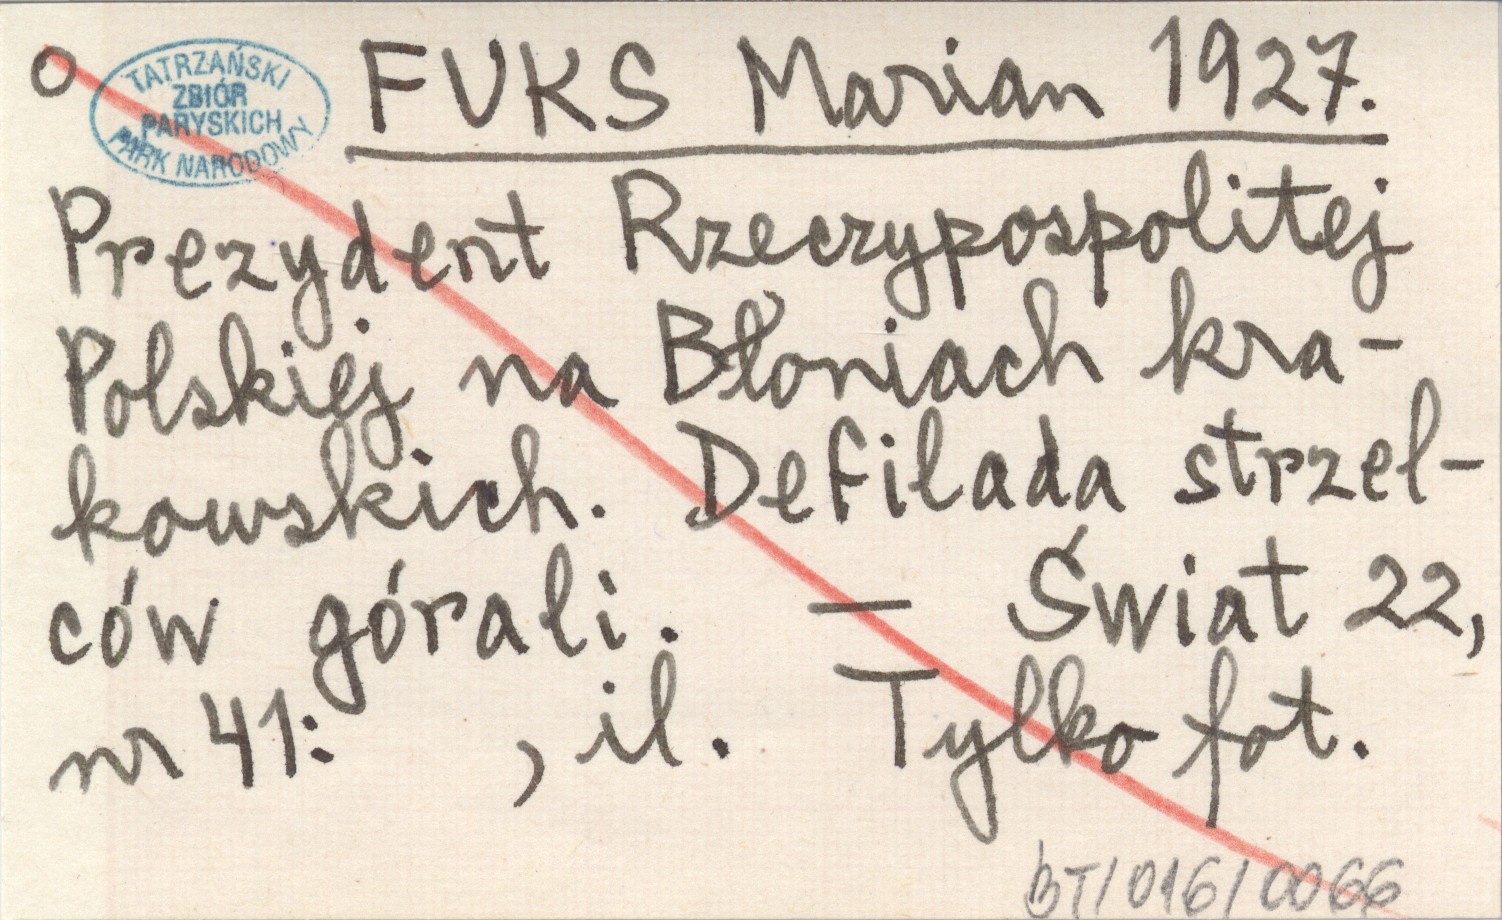 O
TATRZAŃSKI
ZBIÓR
PARYSKICH
PARK NARODOWY
FUKS Marian 1927.
Prezydent Rzeczypospolitej
Polskiej na Błoniach kra-
kowskich. Defilada strzel-
ców górali. — Świat 22,
nr 41: , il. Tylko fot.
BT/016/0066